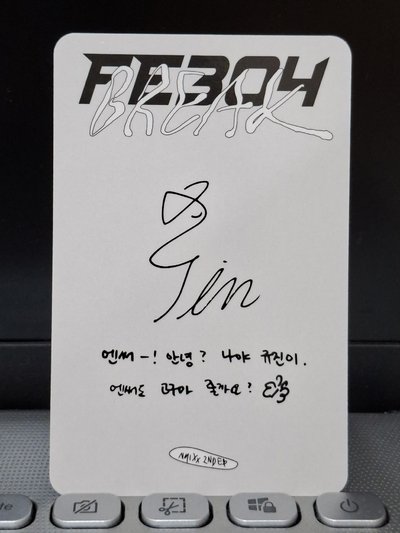 FE3O4
BREAK
Jin
엔써 ~! 안녕? 나야 규진이.
엔써도 고구마 줄까요?
NMIXX 2ND EP